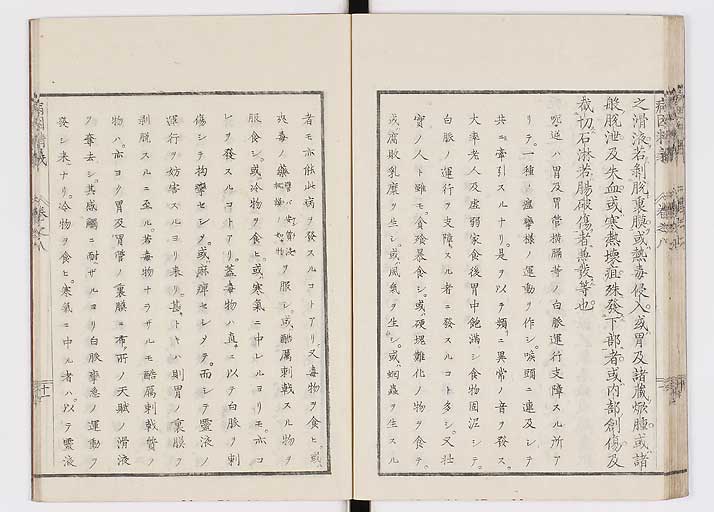 之滑液若剝脫裏膜或熱毒侵入或胃及諸藏焮腫或諸
般脫泄及失血或寒熱壞疽殊發下部者或内部創傷及
截切石淋若腸破傷者兼發等也
呃逆ハ胃及胃管横膈等ノ白脈運行支障スル所ア
リテ一種ノ痙攣樣ノ運動ヲ作シ喉頭ニ連及シテ
共ニ牽引スルナリ是ヲ以テ頻ニ異常ノ音ヲ發ス
大率老人及虛弱家食後胃中飽滿シ食物固泥シテ
白脈ノ運行ヲ支障スル者ニ發スルコト多シ又壯
實ノ人ト雖モ貪飱暴食シ或硬塊難化ノ物ヲ食テ
或腐敗乳糜ヲ生シ或風氣ヲ生シ或蛔蟲ヲ生スル
者モ亦能此病ヲ發スルコトアリ又毒物ヲ食ヒ或
喪毒ノ藥ヲ服シ或酷厲刺戟スル物ヲ
服食シ或冷物ヲ食ヒ或寒氣ニ中レルヨリモ亦コ
レヲ發スルコトアリ蓋毒物ハ眞ニ以テ白脈ヲ刺
傷シテ拘攣セシメ或麻痺セシメテ而シテ靈液ノ
運行ヲ妨害スルヨリ来リ甚トキハ則胃ノ裏膜ヲ
剝脫スルニ至ル若毒物ナラサルモ酷厲刺戟質ノ
物ハ亦ヨク胃及胃管ノ裏膜ニ布所ノ天賦ノ滑液
ヲ奪去シ其感觸ニ耐サルヨリ白脈攣急ノ運動ヲ
發シ来ナリ冷物ヲ食ヒ寒氣ニ中ル者ハ以テ靈液
卷之八
十一